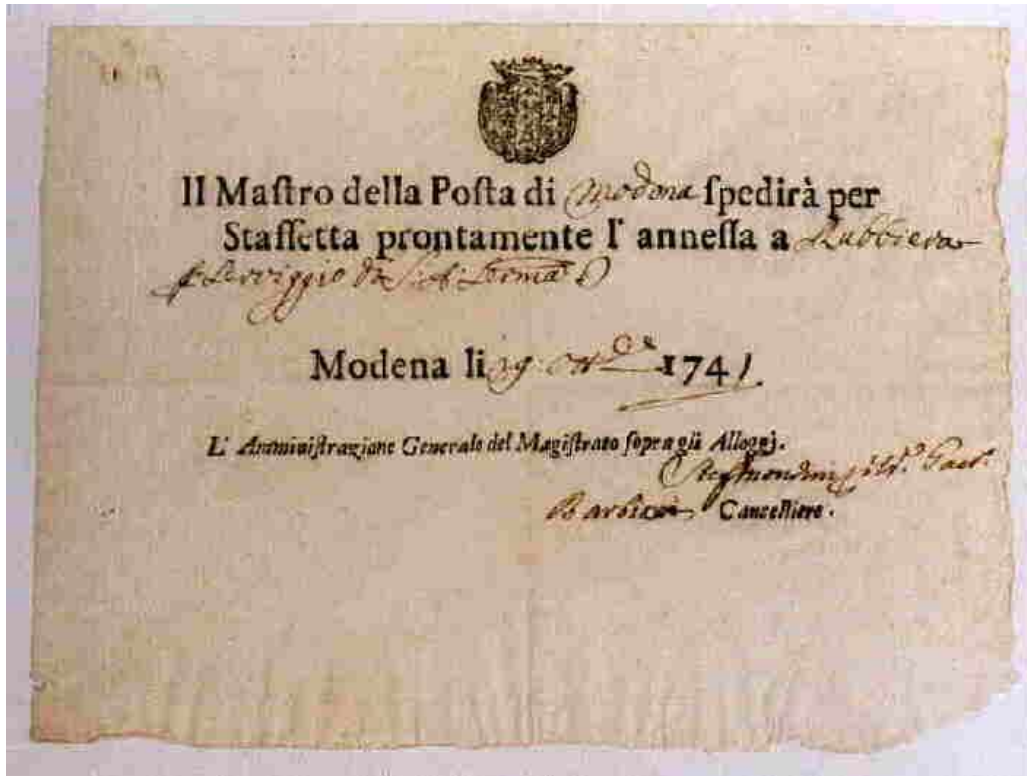 Il Maſtro della Poſta di Modena ſpedirà per
Staffetta prontamente l' anneſſa a Rubbiera
Serviggio di S. A. Serma
Modena li 19 1741
L' Amminiſtrazione Generale del Magiſtrato ſopra gli Alloggj.
Cancelliere.